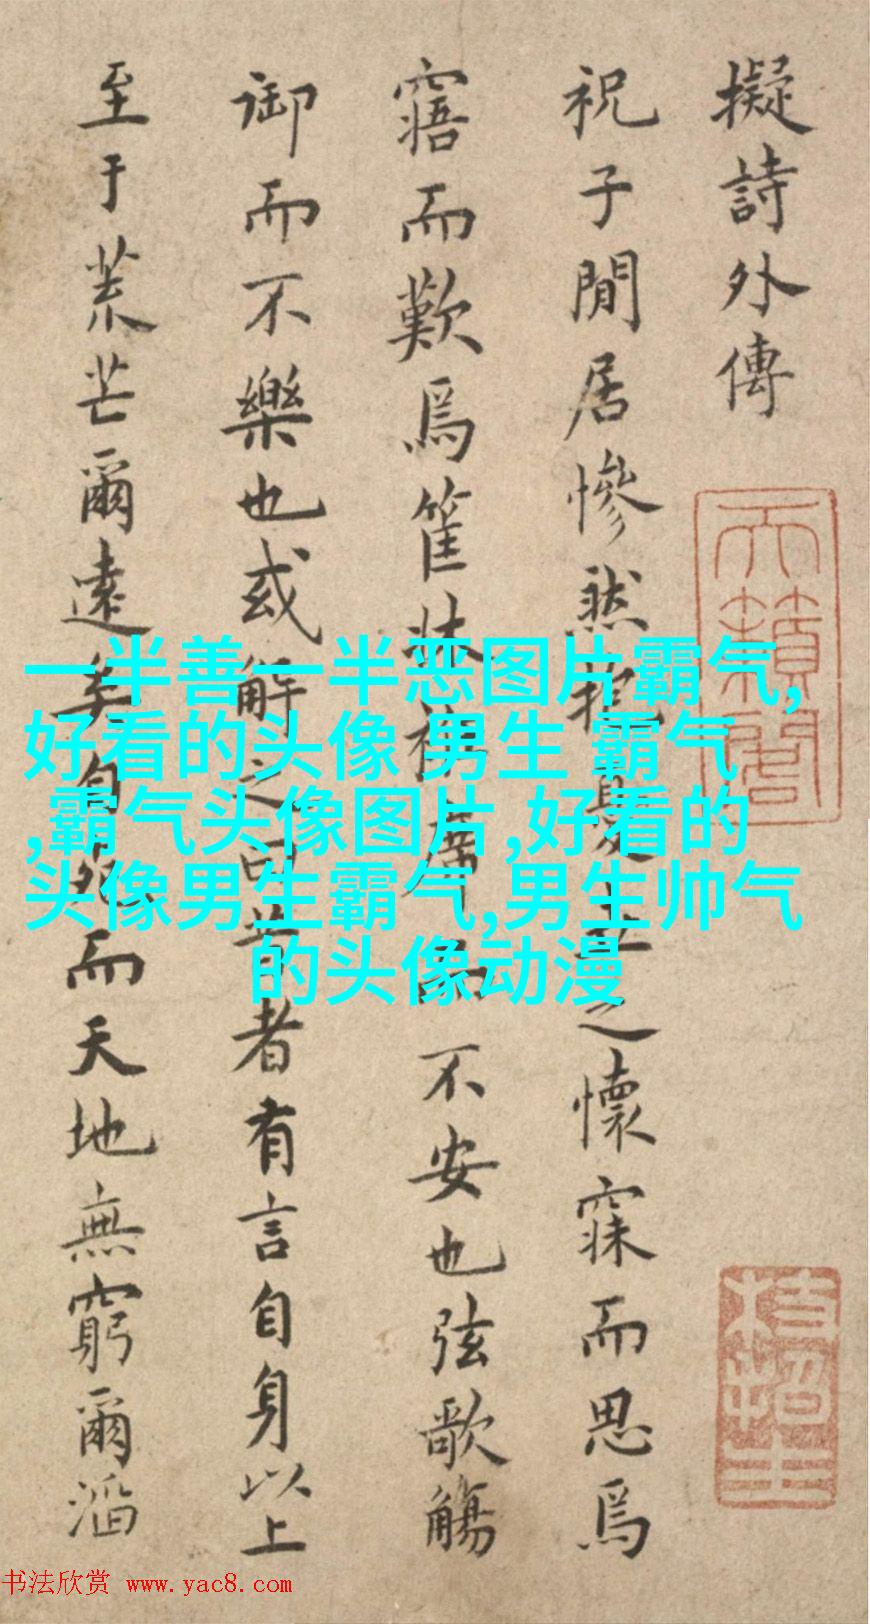 擬詩外傳
祝子閒居慘然抱憂世之懷寐而思焉
寤而歎焉筐牀衽席而不安也弦歌觴
御而不樂也或解之曰昔者有言自身以上
至于荒芒爾遠矣自死而天地無窮爾滔
天籟閣
枝指生
一半善一半恶图片霸气,
好看的头像 男生 霸气
,霸气头像图片,好看的
头像男生霸气,男生帅气
的头像动漫
书法欣赏 www.yac8.com